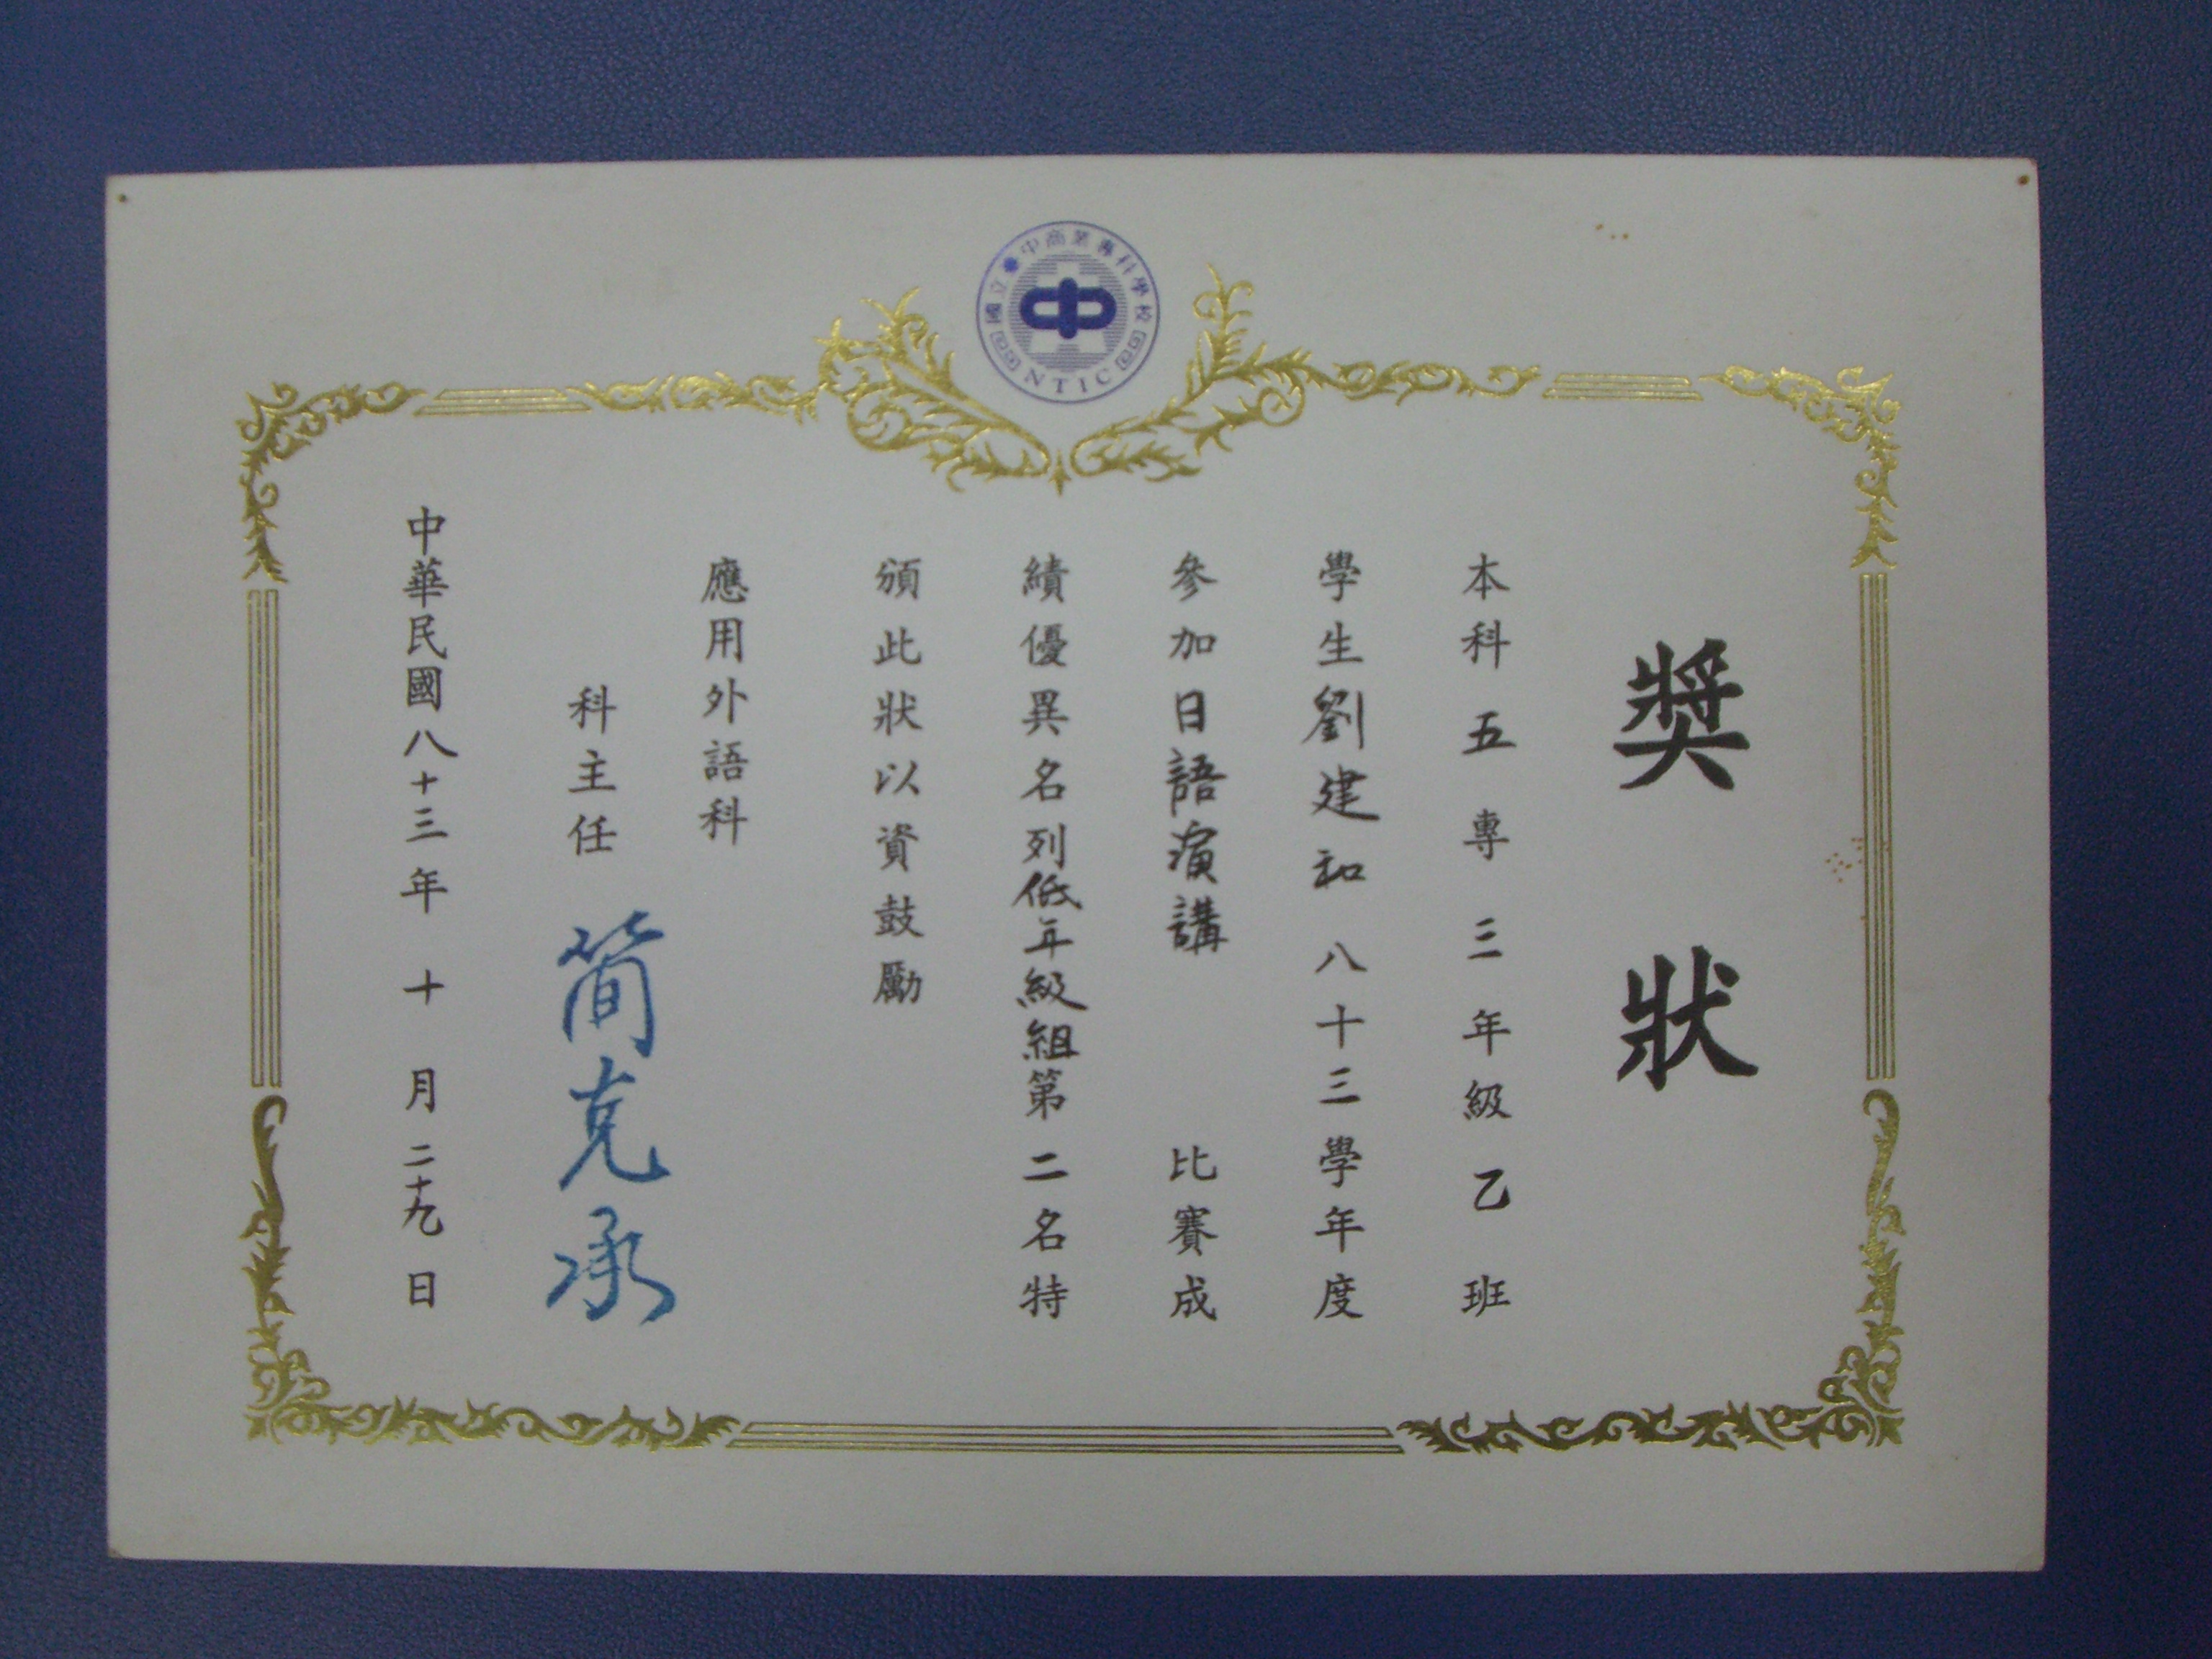 獎狀
本科五專三年級乙班
學生劉建和八十三學年度
參加日語演講比賽成
績優異名列低年級組第二名特
頒此狀以資鼓勵
應用外語科
科主任 簡克承
中華民國八十三年十月二十九日
國立中商業專科學校
NTIC